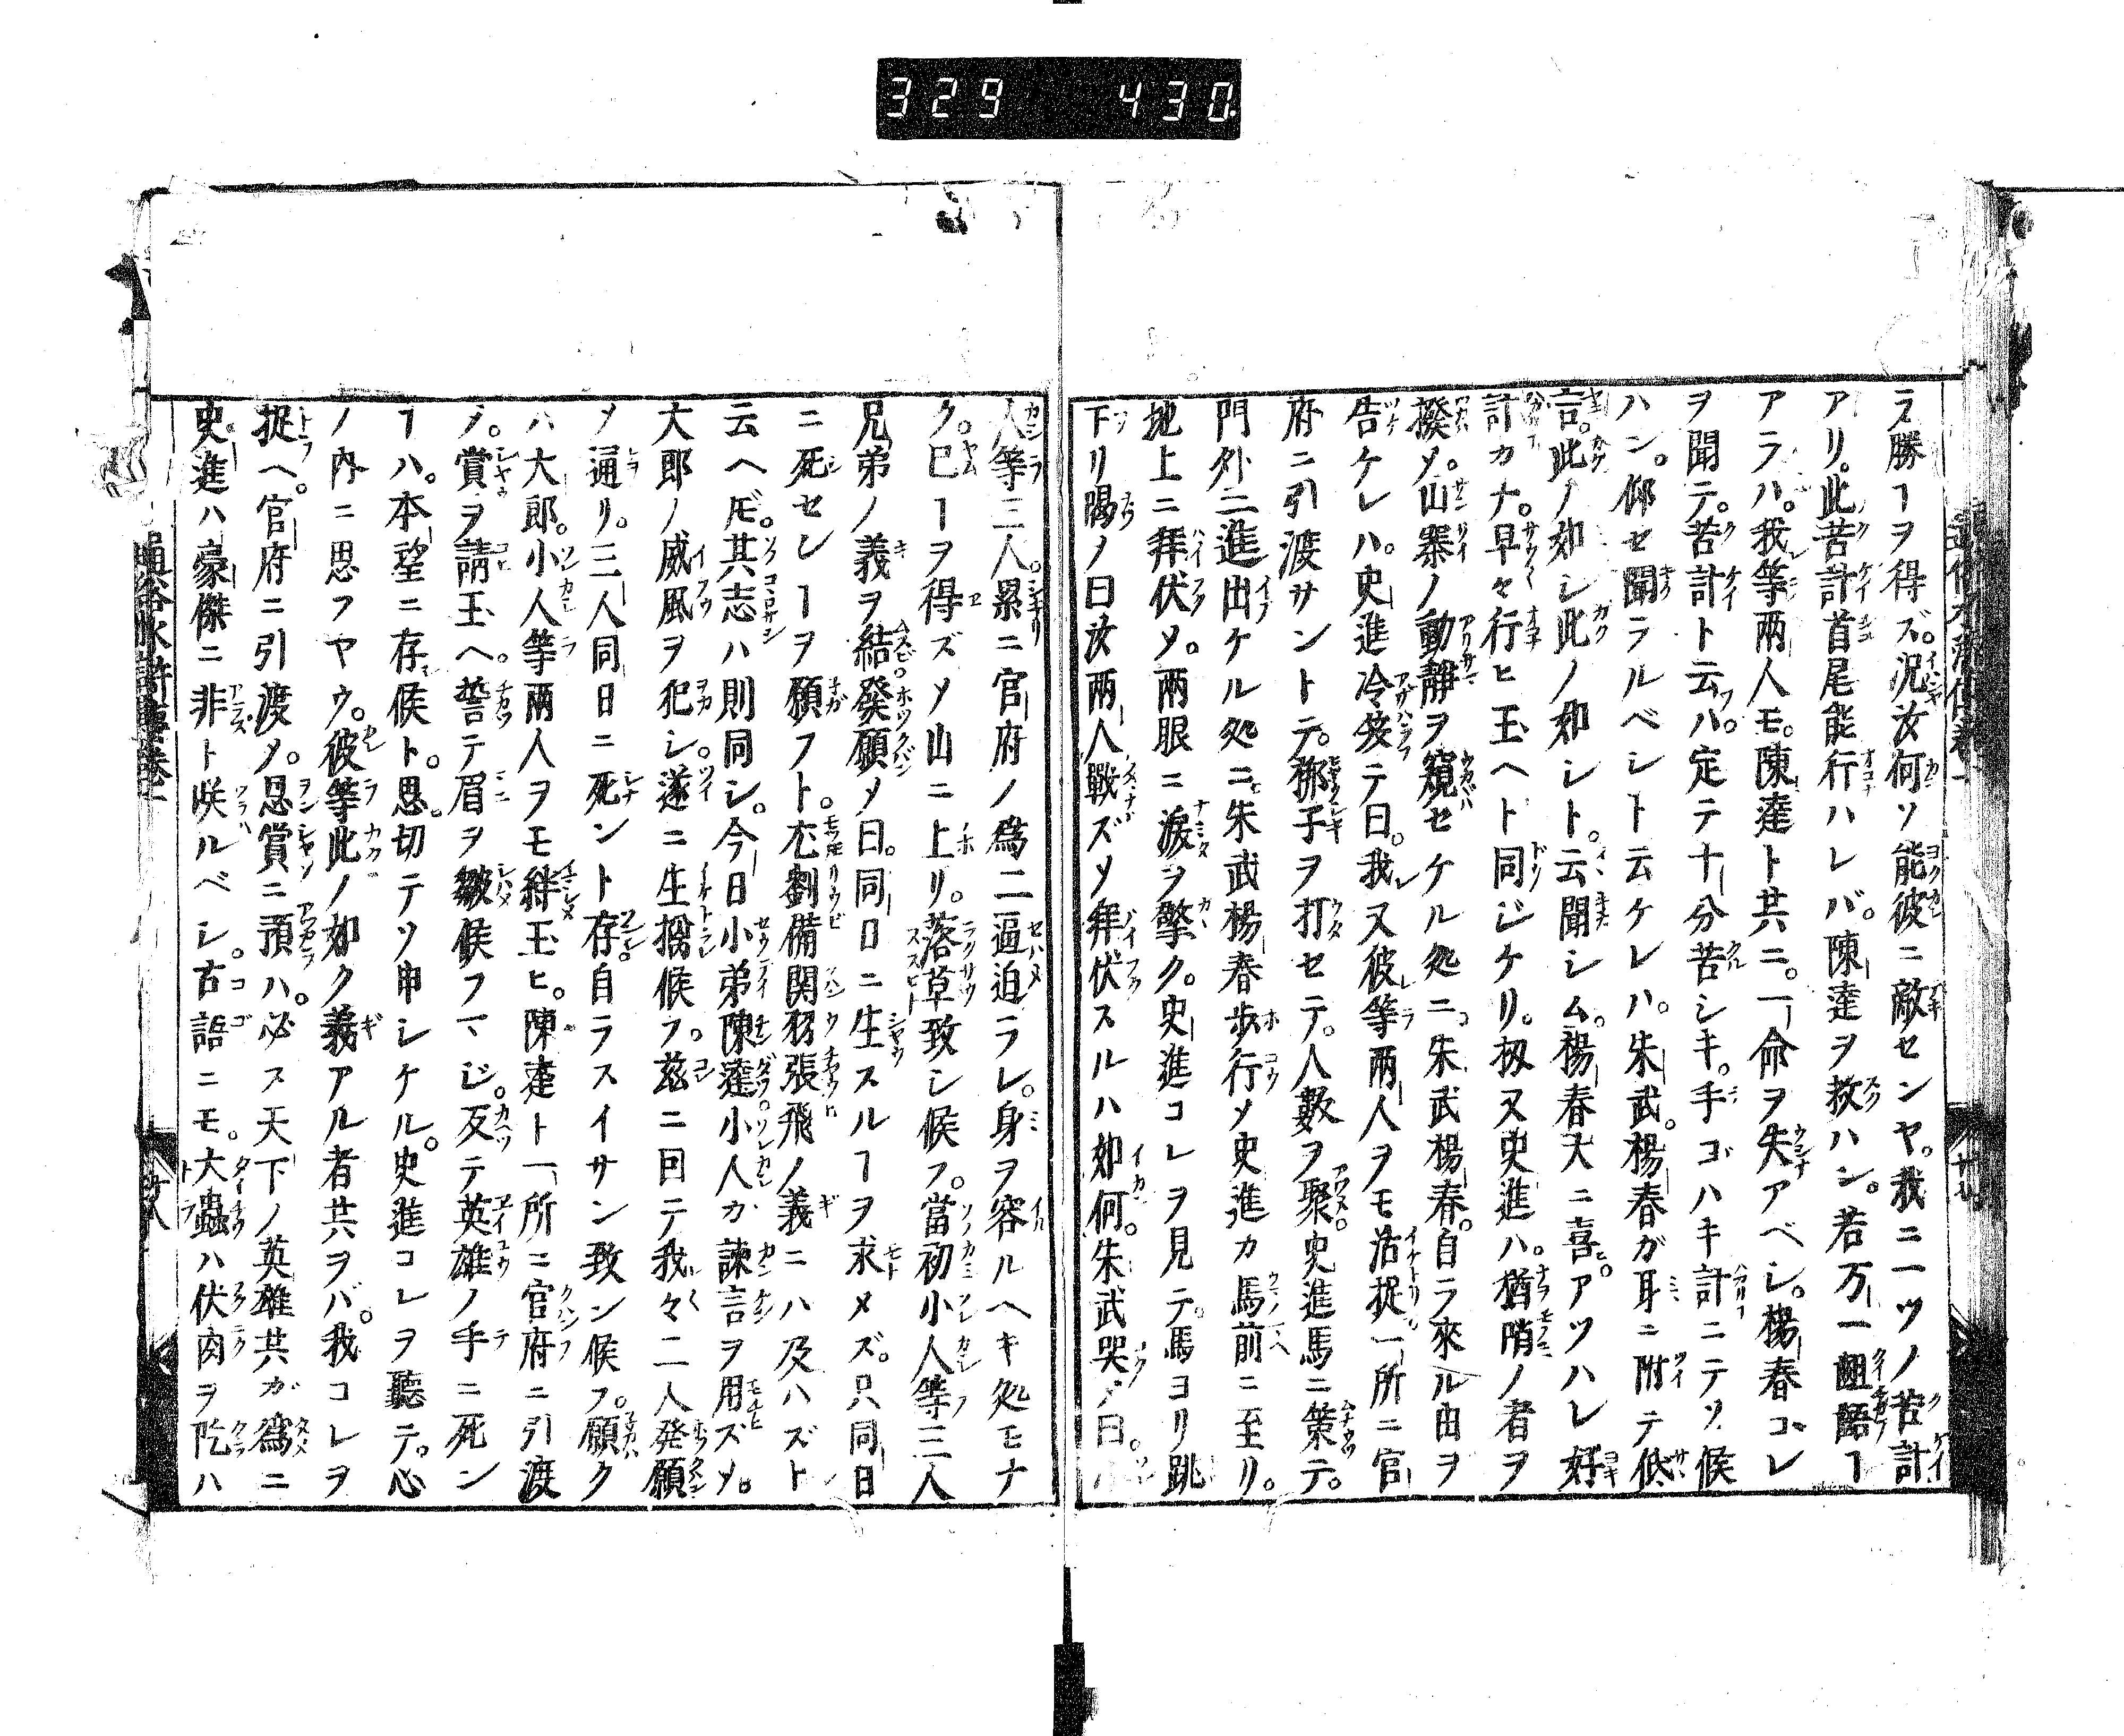 329 430
ラズ勝ヿヲ得ズ。況汝何ソ能彼ニ敵センヤ。我ニ一ツノ苦計
アリ。此苦計首尾能行ハレバ。陳達ヲ救ハン。若万一齟齬ヿ
アラハ。我等両人モ。陳達ト共ニ。一命ヲ失アベシ。楊春コレ
ヲ聞テ。苦計ト云フハ。定テ十分苦シキ。手ゴハキ計ニテソ候
ハン。仰セ聞ラルベシト云ケレハ。朱武。楊春ガ耳ニ附テ低
言。此ノ如シ此ノ如シト。云聞シム。楊春大ニ喜。アツハレ好
計カナ。早々行ヒ玉ヘト同ジケリ。扨又史進ハ。猶哨ノ者ヲ
撥メ。山寨ノ動静ヲ窺セケル処ニ。朱武楊春。自ラ來ル由ヲ
告ケレハ。史進冷笑テ曰。我又彼等両人ヲモ活捉一所ニ官
府ニ引渡サントテ。梆子ヲ打セテ。人數ヲ聚。史進馬ニ策テ。
門外ニ進出ケル処ニ。朱武楊春歩行メ史進カ馬前ニ至リ。
地上ニ拜伏メ。両眼ニ涙ヲ擎ク。史進コレヲ見テ。馬ヨリ跳
下リ喝ノ曰汝両人戰ズメ拜伏スルハ如何。朱武哭メ曰。小
人等三人。累ニ官府ノ為ニ逼迫ラレ。身ヲ容ルヘキ処モナ
ク。已ヿヲ得ズメ山ニ上リ。落草致シ候フ。當初小人等三人
兄弟ノ義ヲ結。発願メ曰。同日ニ生スルヿヲ求メズ。只同日
ニ死センヿヲ願フト。尤劉備関羽張飛ノ義ニハ及ハズト
云ヘ𪜈。其志ハ則同シ。今日小弟陳達小人カ諫言ヲ用ズメ。
大郎ノ威風ヲ犯シ。遂ニ生擒候フ。茲ニ回テ我々二人発願
メ通リ。三人同日ニ死ント存。自ラスイサン致ン候フ。願ク
ハ大郎。小人等両人ヲモ絆玉ヒ。陳達ト一所ニ官府ニ引渡
メ。賞ヲ請玉ヘ。誓テ眉ヲ皺候フマジ。反テ英雄ノ手ニ死ン
ヿハ。本望ニ存候ト。思切テソ申シケル。史進コレヲ聽テ。心
ノ内ニ思フヤウ。彼等此ノ如ク義アル者共ヲバ。我コレヲ
捉ヘ。官府ニ引渡メ。恩賞ニ預ハ。必ス天下ノ英雄共ガ為ニ
史進ハ豪傑ニ非ト咲ルベシ。古語ニモ。大蟲ハ伏肉ヲ吃ハ
通俗水滸傳巻二